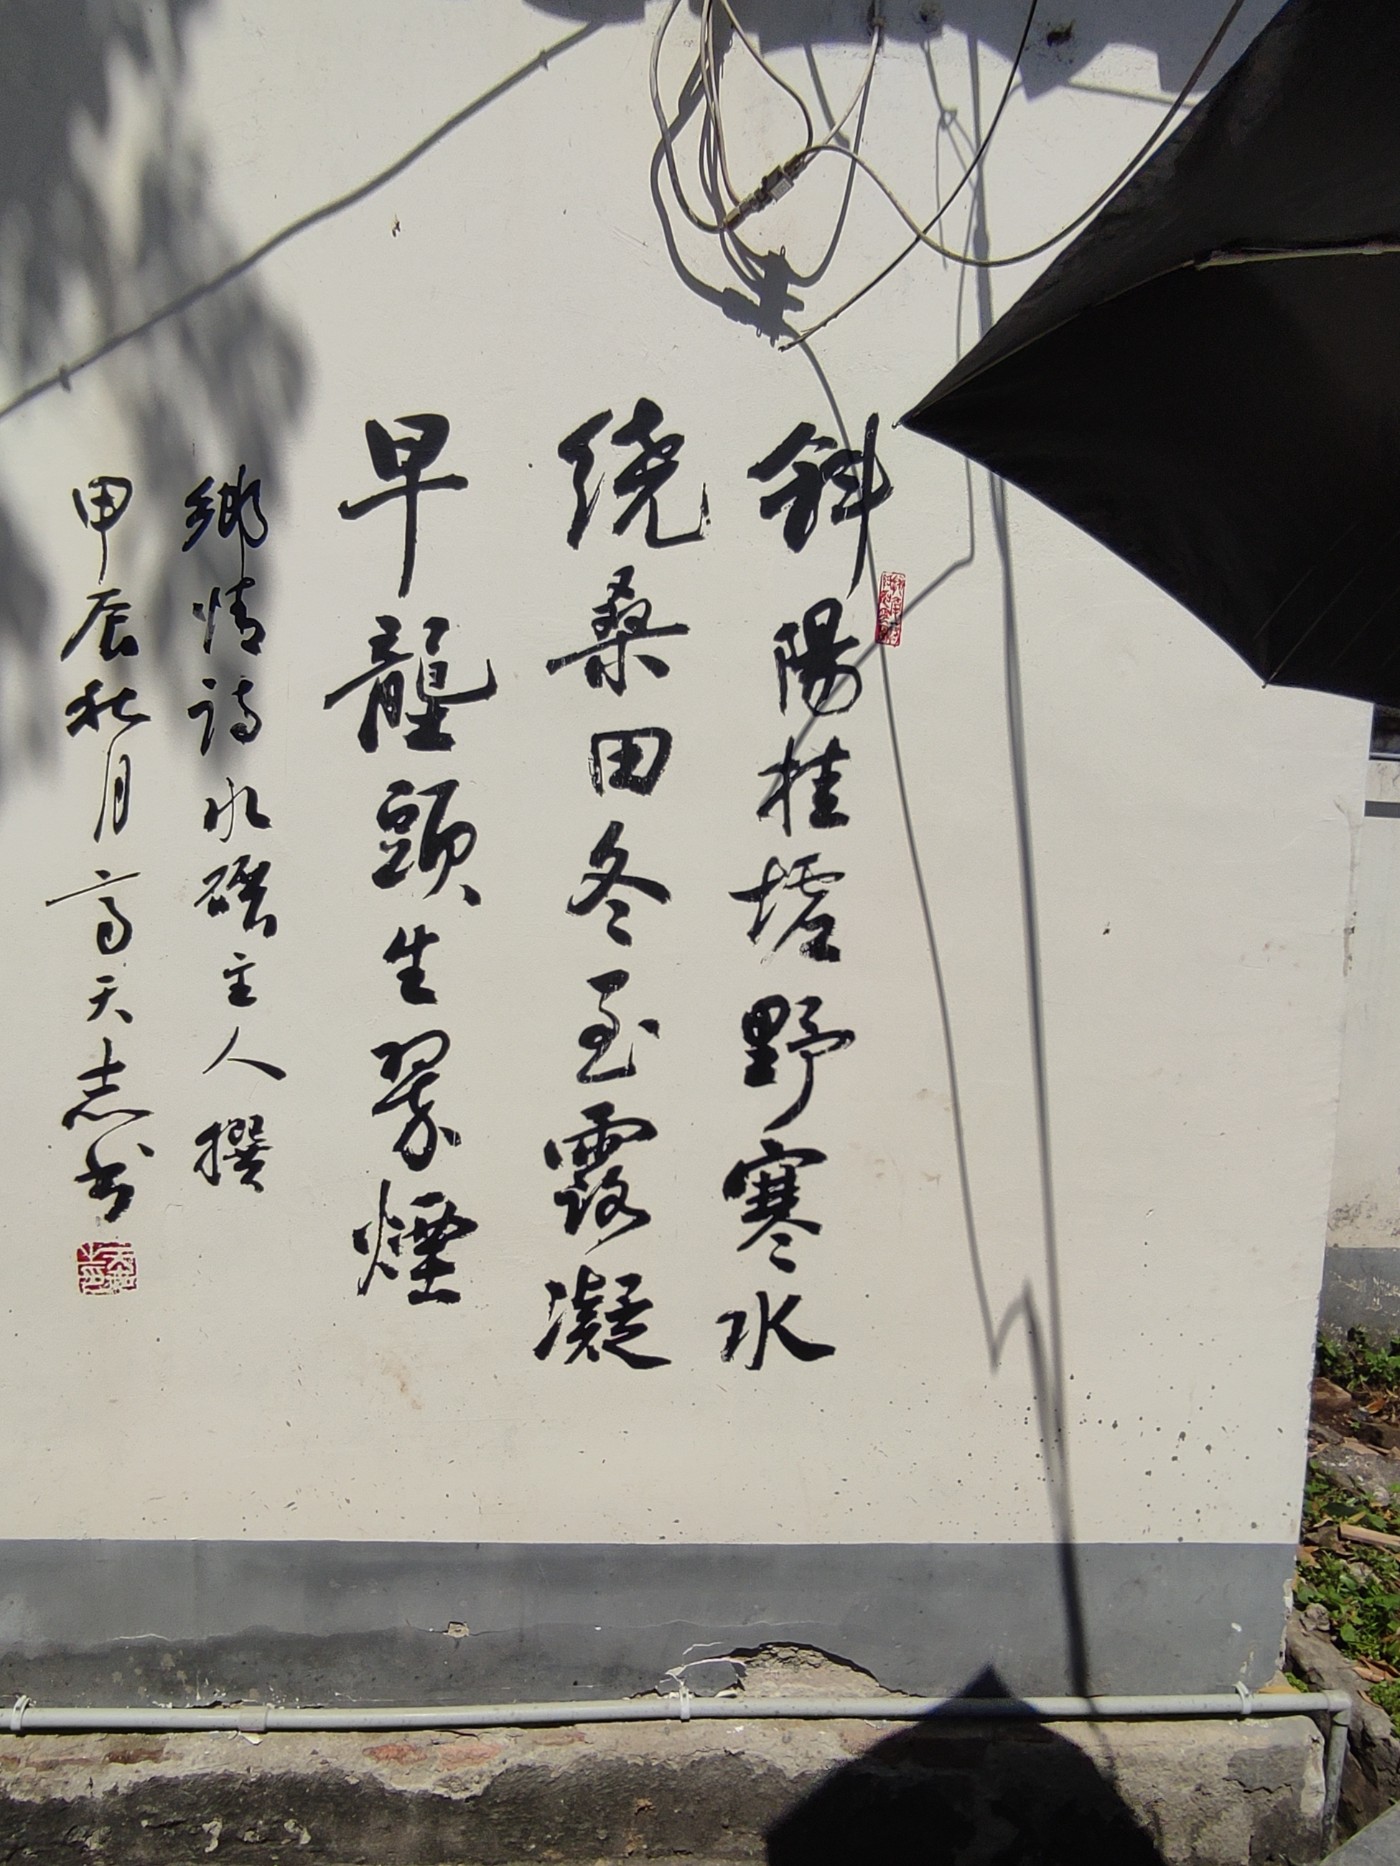 斜陽挂墟野寒水
繞桑田冬至露凝
早壟頭生翠煙
鄉情詩水碾主人撰
甲辰秋月高天志书